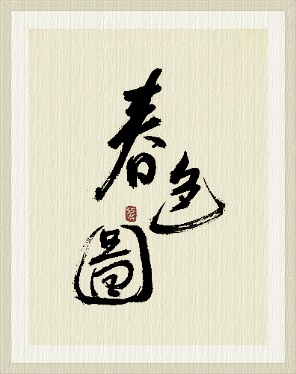 春色圖